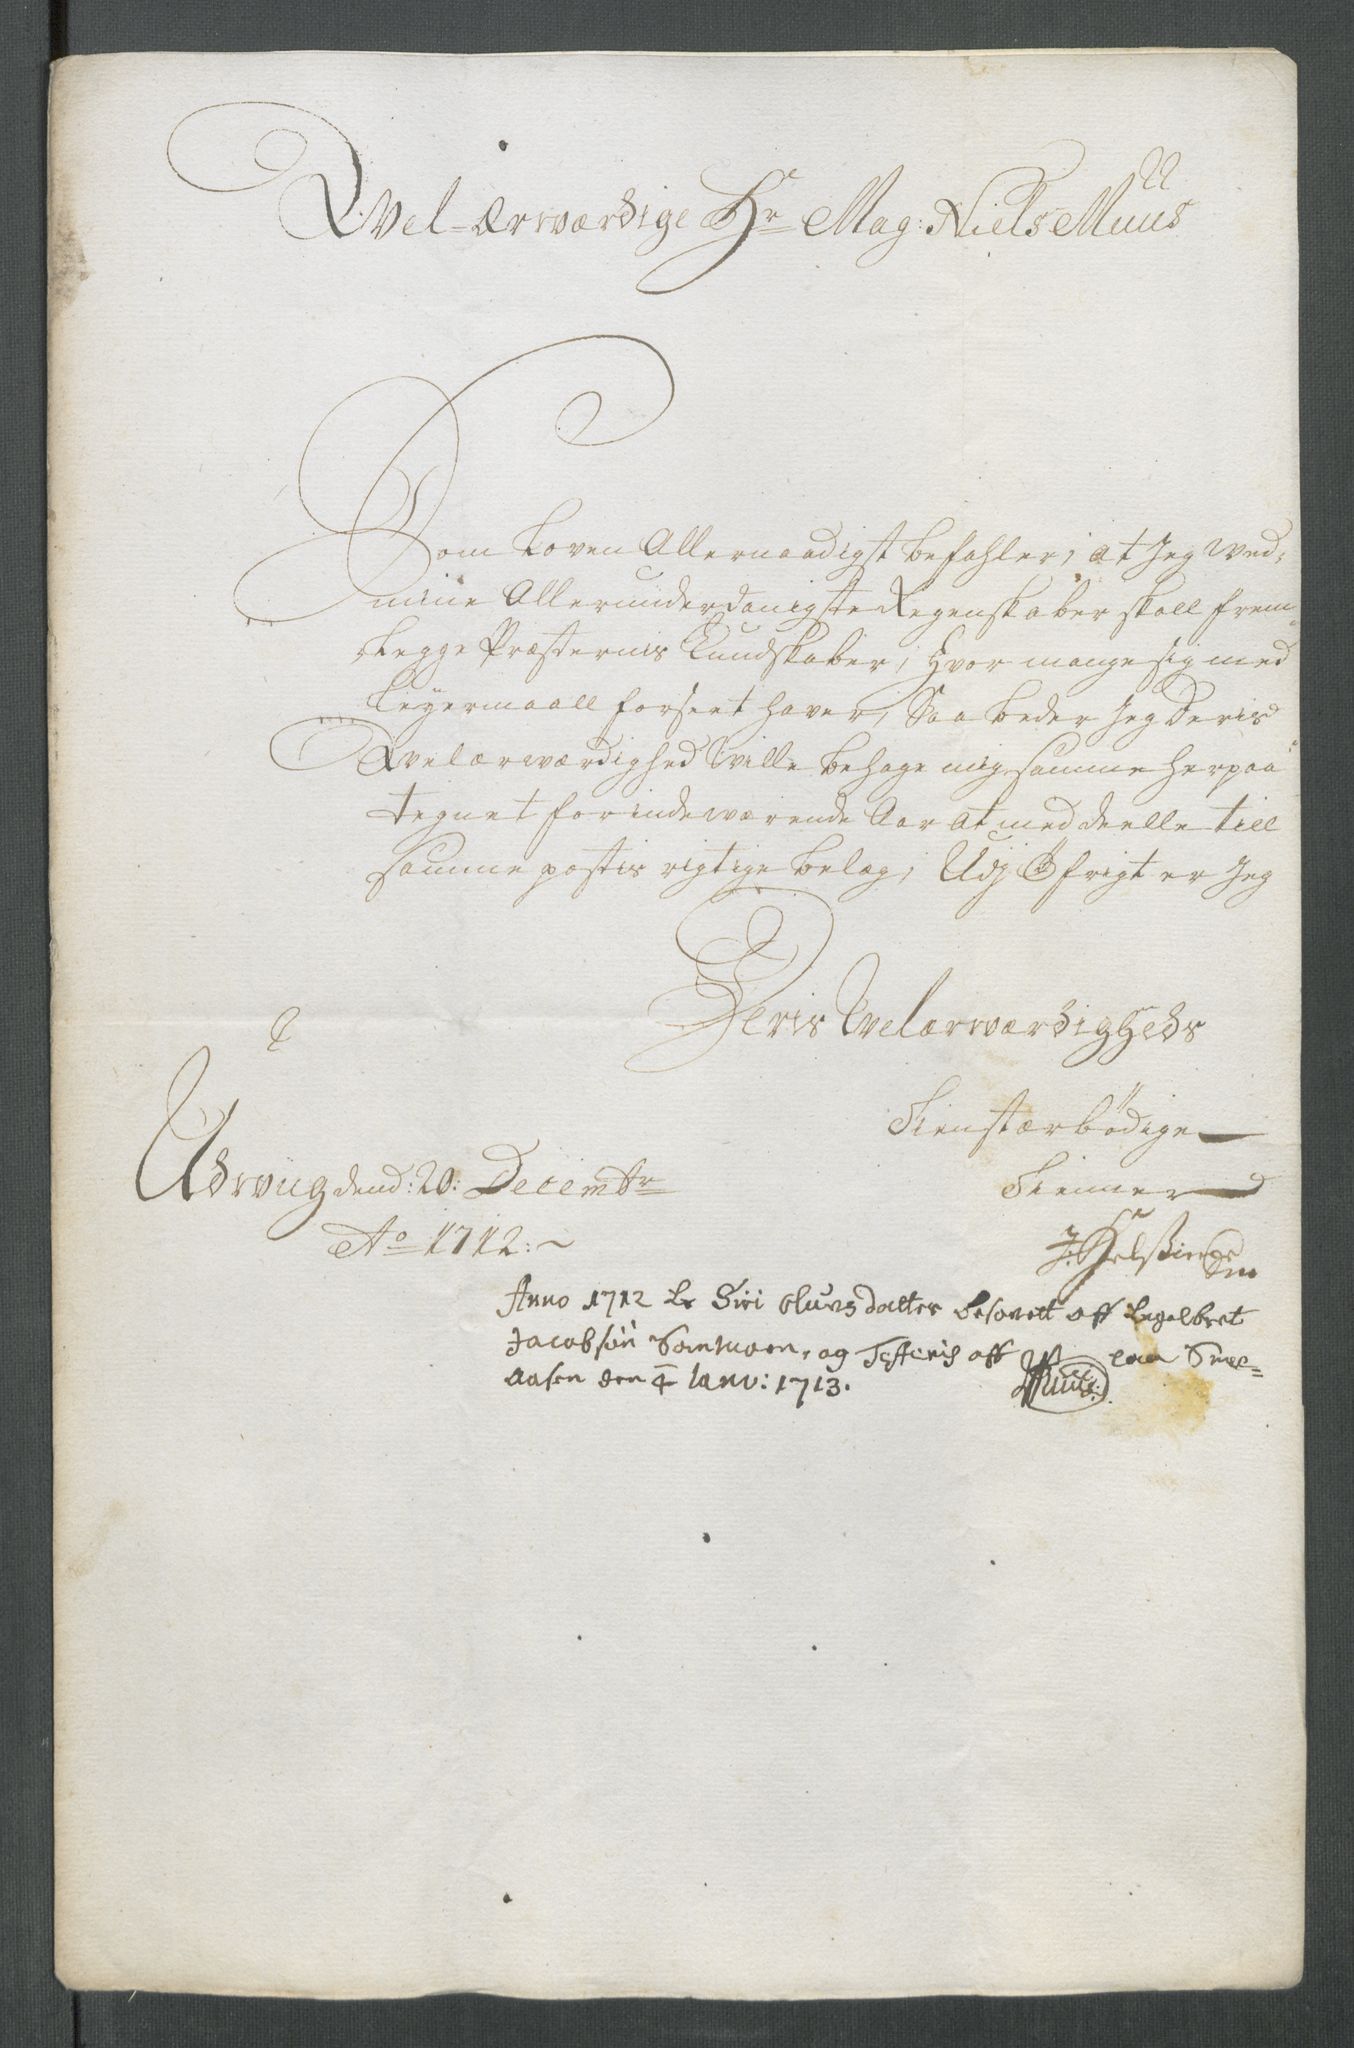 Welærwærdige Hr Mag: Niels Muus
Som Loven Allernaadigst befahler, at Jeg wed
mine Allerunderdanigste Regenskaber skall frem
Legge Præsternis Kundskaber, Hvor mange sig med
Leyermaall forseet haver, Saa beder Jeg Deris
Welærwærdighed wille behage mig samme herpaa
tegnet for indeværende Aar at meddeelle till
samme postis rigtige belæg, Udj Øfrigt er Jeg
Deris Welærwærdigheds
Tienstærbødige
Tienner
dend: 20: Decembr
Ao 1712:
Anno 1712 Er Siri Olufsdatter besovett aff Engelbret
Jacobsøn og aff paa Snee-
aasen den 4 Janv: 1713.
Muus